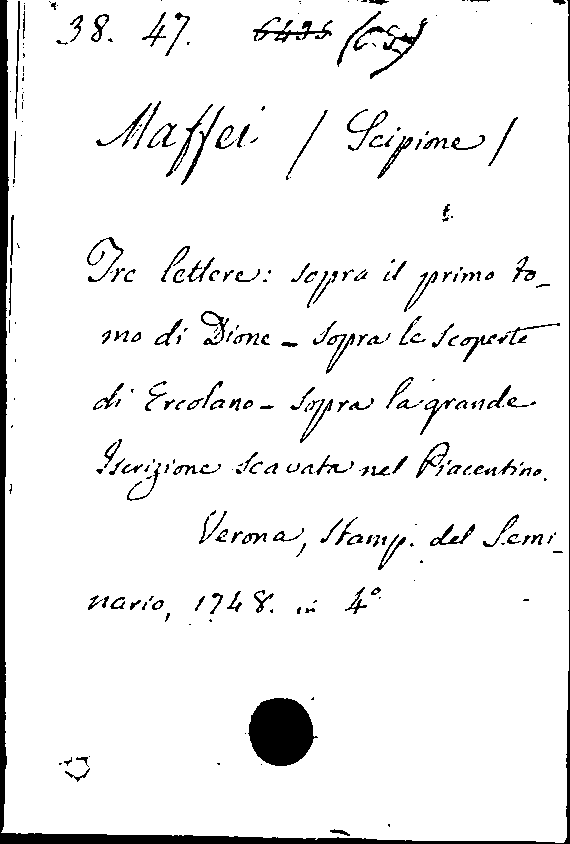 38. 47. 6435 (C.S.)
Maffei / Scipione /
Tre lettere: sopra il primo to_
mo di Dione - sopra le scoperte
di Ercolano - sopra la grande
Iscrizione scavata nel Piacentino.
Verona, Stamp. del Semi_
nario, 1748. in 4º